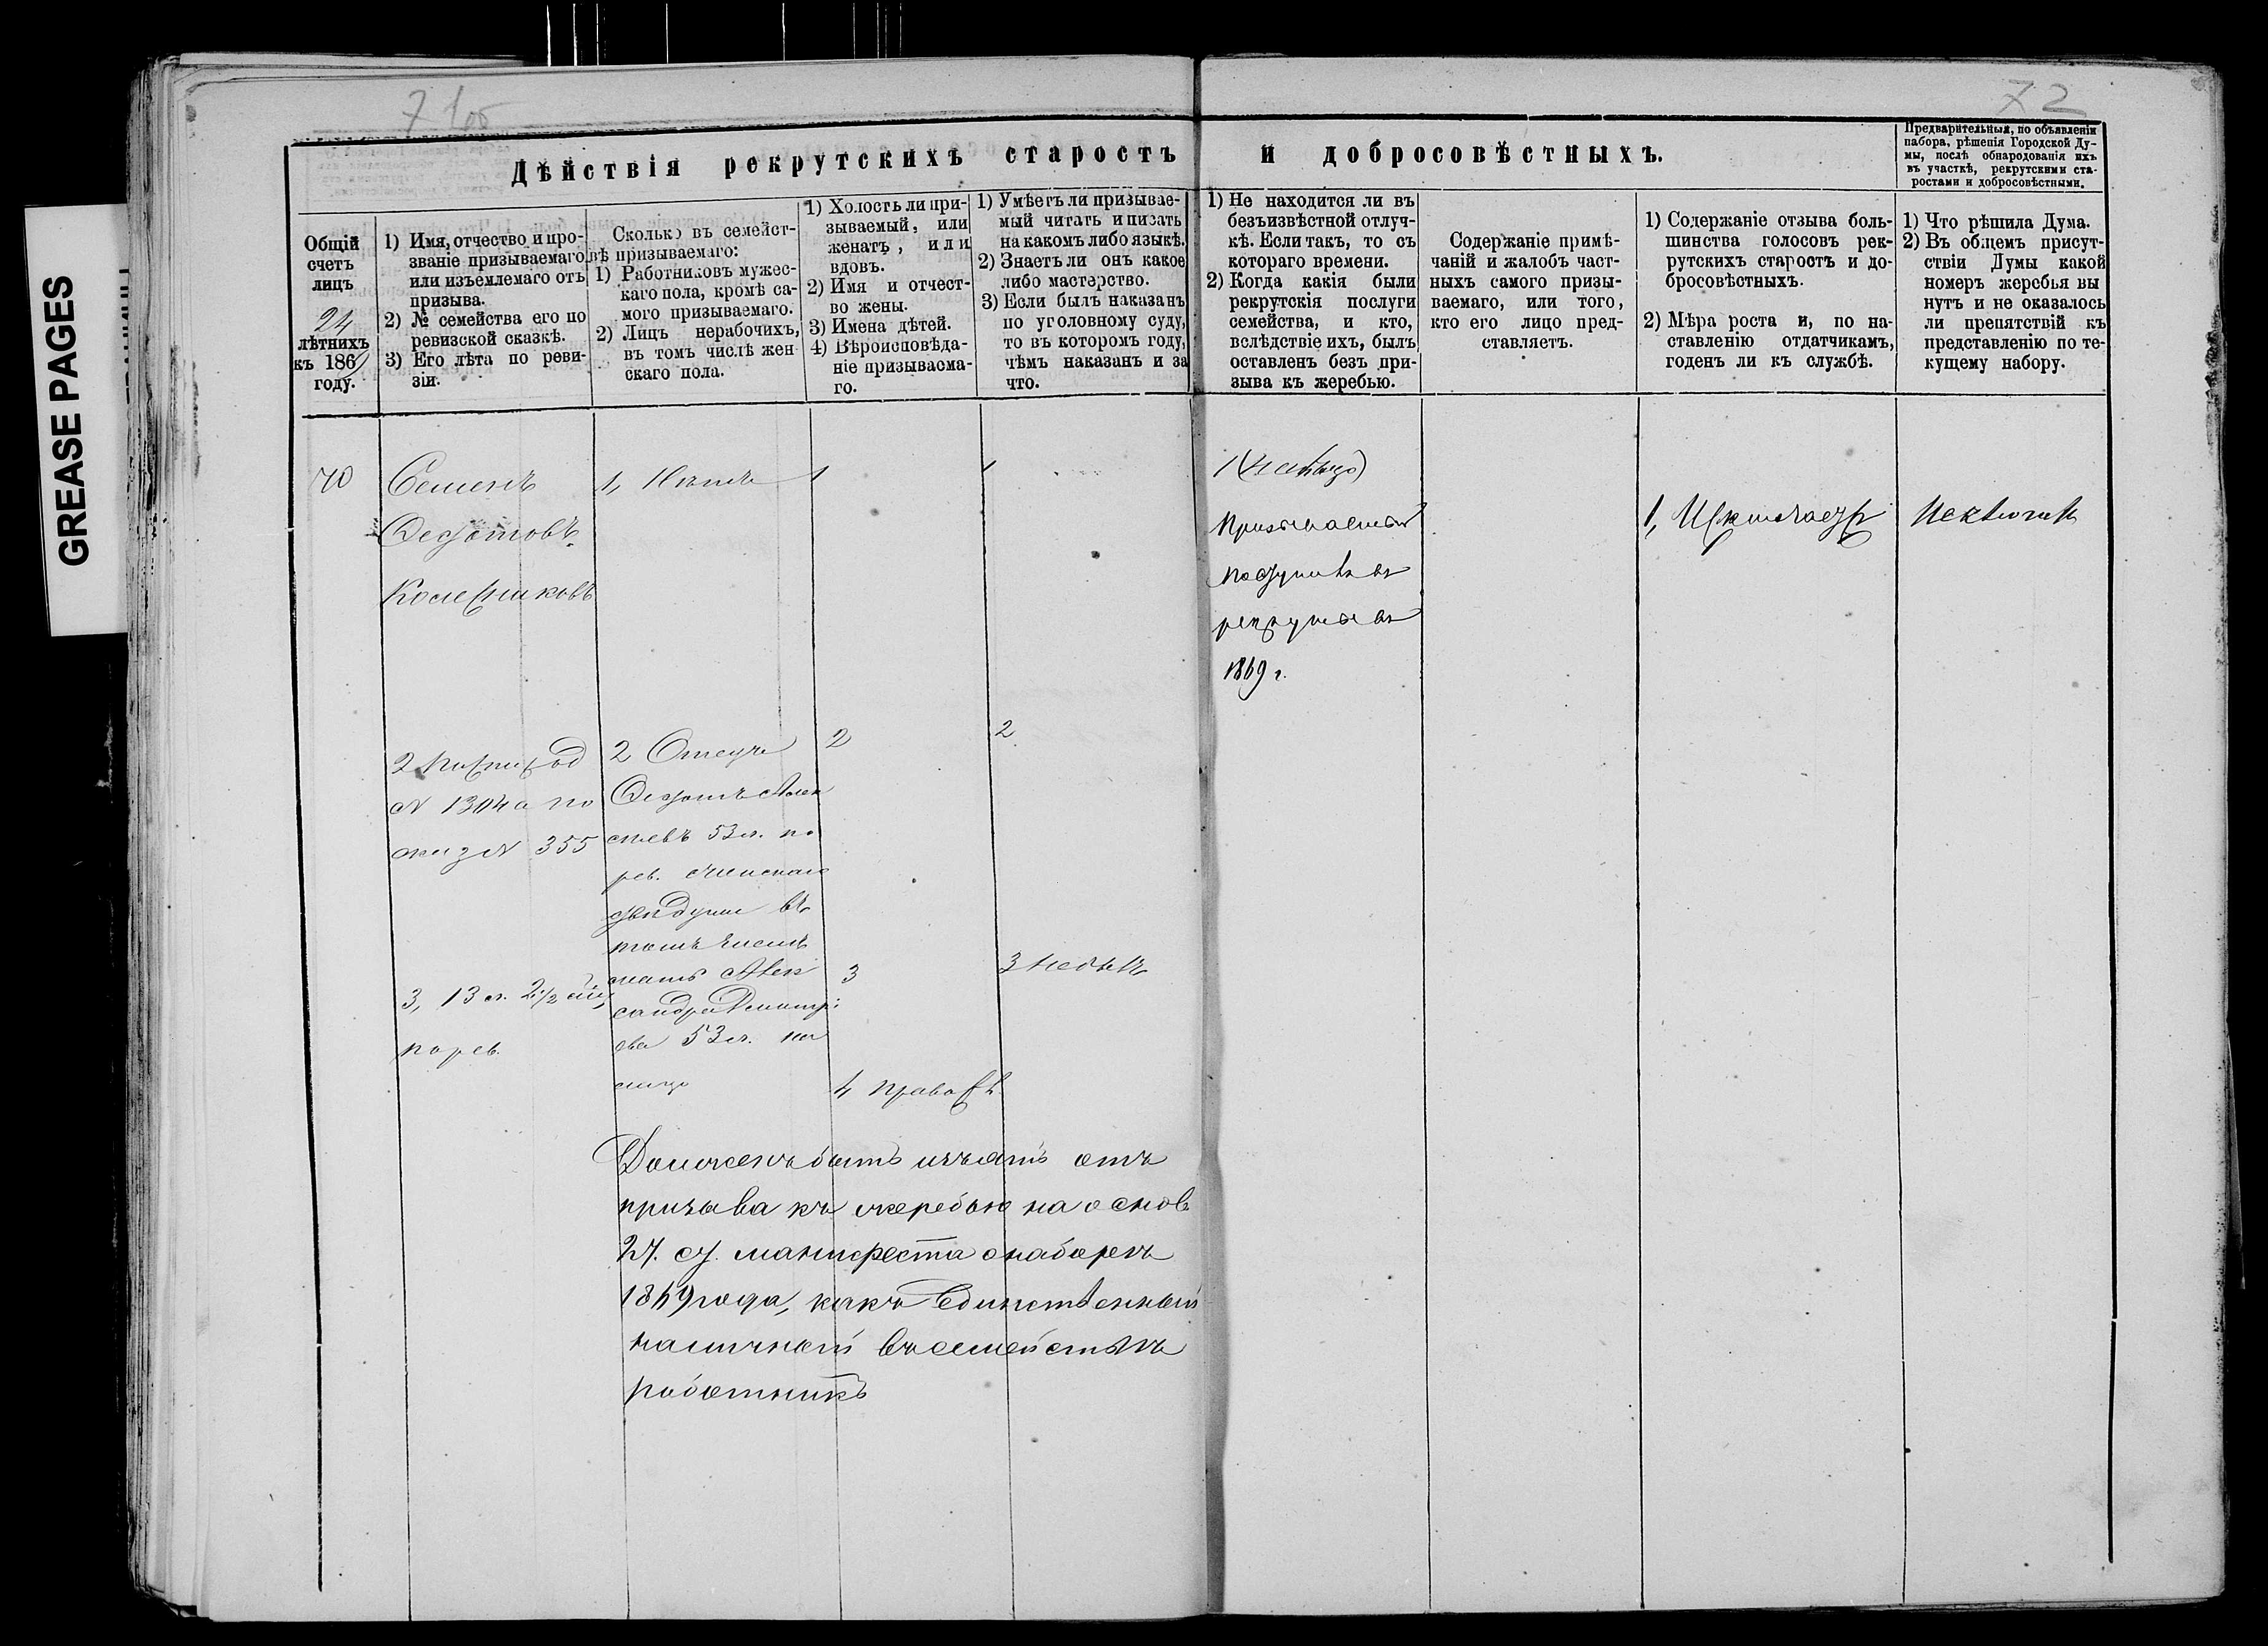 GREASE PAGES
71об
72
Дѣйствія рекрутскихъ старостъ и добросовѣстныхъ.
Предварительныя, по объявленіи
набора, рѣшенія Городской Ду-
мы, послѣ обнародованія ихъ
въ участкѣ, рекрутскими ста-
ростами и добросовѣстными.
Общій
счетъ
лицъ
24
лѣтнихъ
къ 1869
году.
1) Имя, отчество и про-
званіе призываемаго
или изъемлемаго отъ
призыва.
2) № семейства его по
ревизской сказкѣ.
3) Его лѣта по реви-
зіи.
Сколько въ семейст-
вѣ призываемаго:
1) Работниковъ мужес-
каго пола, кромѣ са-
мого призываемаго.
2) Лицъ нерабочихъ,
въ томъ числѣ жен
скаго пола.
1) Холостъ ли при-
зываемый, или
женатъ, или
вдовъ.
2) Имя и отчест-
во жены.
3) Имена дѣтей.
4) Вѣроисповѣда-
ніе призываема-
го.
1) Умѣетъ ли призывае-
мый читать и писать
на какомъ либо языкѣ.
2) Знаетъ ли онъ какое
либо мастерство.
3) Если былъ наказанъ
по уголовному суду,
то въ которомъ году,
чѣмъ наказанъ и за
что.
1) Не находится ли въ
безъизвѣстной отлуч-
кѣ. Если такъ, то съ
котораго времени.
2) Когда какія были
рекрутскія послуги
семейства, и кто,
вслѣдствіе ихъ, былъ
оставленъ безъ при-
зыва къ жеребью.
Содержаніе примѣ-
чаній и жалобъ част-
ныхъ самого призы-
ваемаго, или того,
кто его лицо пред-
ставляетъ.
1) Содержаніе отзыва боль-
шинства голосовъ рек-
рутскихъ старостъ и до-
бросовѣстныхъ.
2) Мѣра роста и, по на-
ставленію отдатчикамъ,
годенъ ли къ службѣ.
1) Что рѣшила Дума.
2) Въ общемъ присут-
ствіи Думы какой
номеръ жеребья вы
нутъ и не оказалось
ли препятствій къ
представленію по те-
кущему набору.
70
Семенъ
Федотовъ
Колесниковъ
1, Нѣтъ
1
1
1 (На лицо)
Призываемый
поступилъ въ
рекруты въ
1869 г.
1, Исключается
Исключить
2
№ 1304 а по
№ 355
2 Отецъ
Федотъ Алек
сѣевъ 53 л. по
рев. женскаго
двѣ души въ
томъ числѣ
мать Алек
сандра Дмитрі
ева 53 л. на
лицо
2
2
3, 13 л. 2 1/2 мѣс
по рев.
3
3 не былъ
4 правосл.
Долженъ быть изъятъ отъ
призыва къ жеребью на основ
27. ст. манифеста о наборѣ
1869 года, какъ единственный
наличный въ семействѣ
работникъ